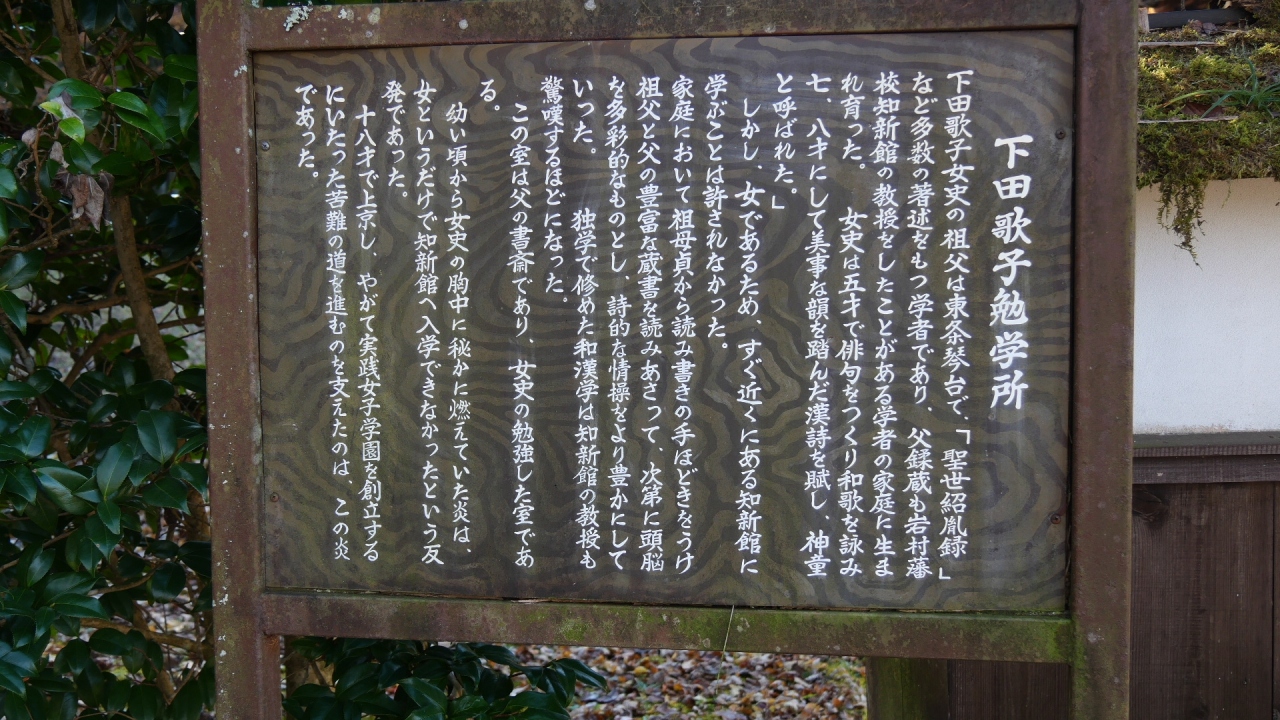 下田歌子勉学所
下田歌子女史の祖父は東条琴台で、「聖世紹胤録」
など多数の著述をもつ学者であり、父鍒蔵も岩村藩
校知新館の教授をしたことがある学者の家庭に生ま
れ育った。　女史は五才で俳句をつくり和歌を詠み
七、八才にして美事な韻を踏んだ漢詩を賦し、神童
と呼ばれた。」
しかし、女であるため、すぐ近くにある知新館に
学ぶことは許されなかった。
家庭において祖母貞から読み書きの手ほどきをうけ
祖父と父の豊富な蔵書を読みあさって、次第に頭脳
を多彩的なものとし、詩的な情操をより豊かにして
いった。　独学で修めた和漢学は知新館の教授も
驚嘆するほどになった。
この室は父の書斎であり、女史の勉強した室であ
る。
幼い頃から女史の胸中に秘かに燃えていた炎は、
女というだけで知新館へ入学できなかったという反
発であった。
十八才で上京し、やがて実践女子学園を創立する
にいたった苦難の道を進むのを支えたのは、この炎
であった。